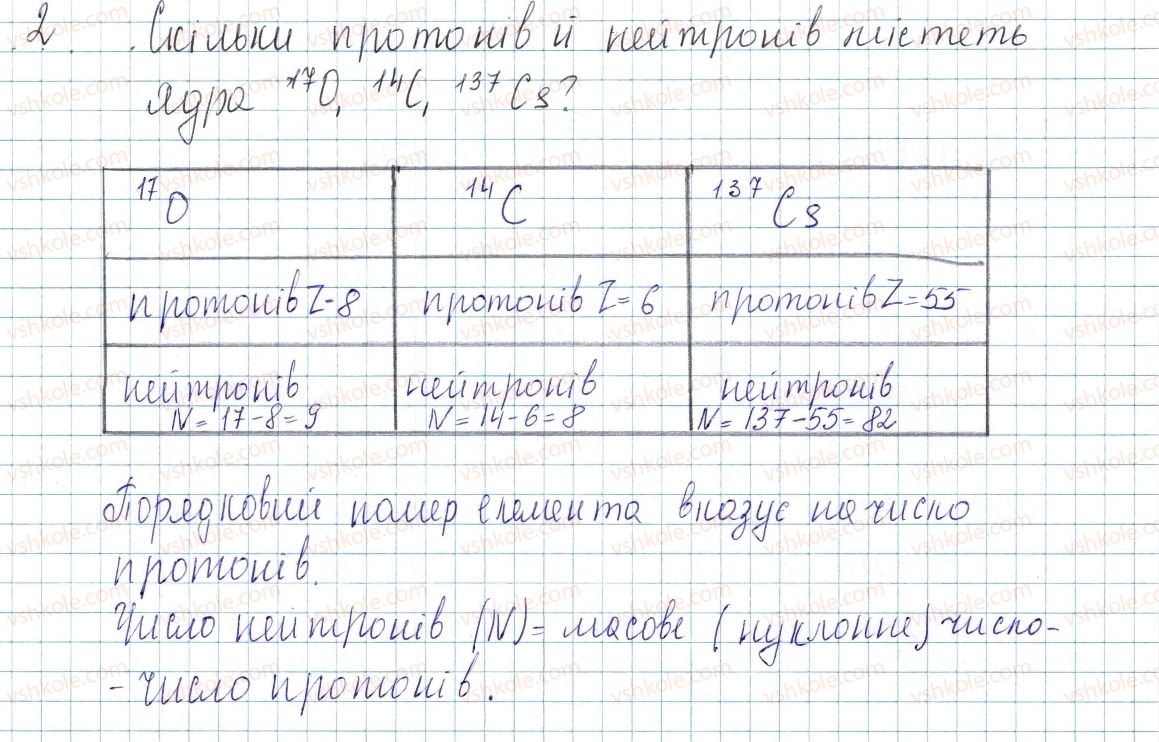 2. Скільки протонів й нейтронів містеть
ядра ¹⁷O, ¹⁴C, ¹³⁷Cs?
¹⁷O ¹⁴C ¹³⁷Cs
протонів Z-8 протонів Z=6 протонів Z=55
нейтронів нейтронів нейтронів
N=17-8=9 N=14-6=8 N=137-55=82
Порядковий номер елемента вказує на число
протонів.
Число нейтронів (N)= масове (нуклонне) число-
- число протонів.
vshkole.com